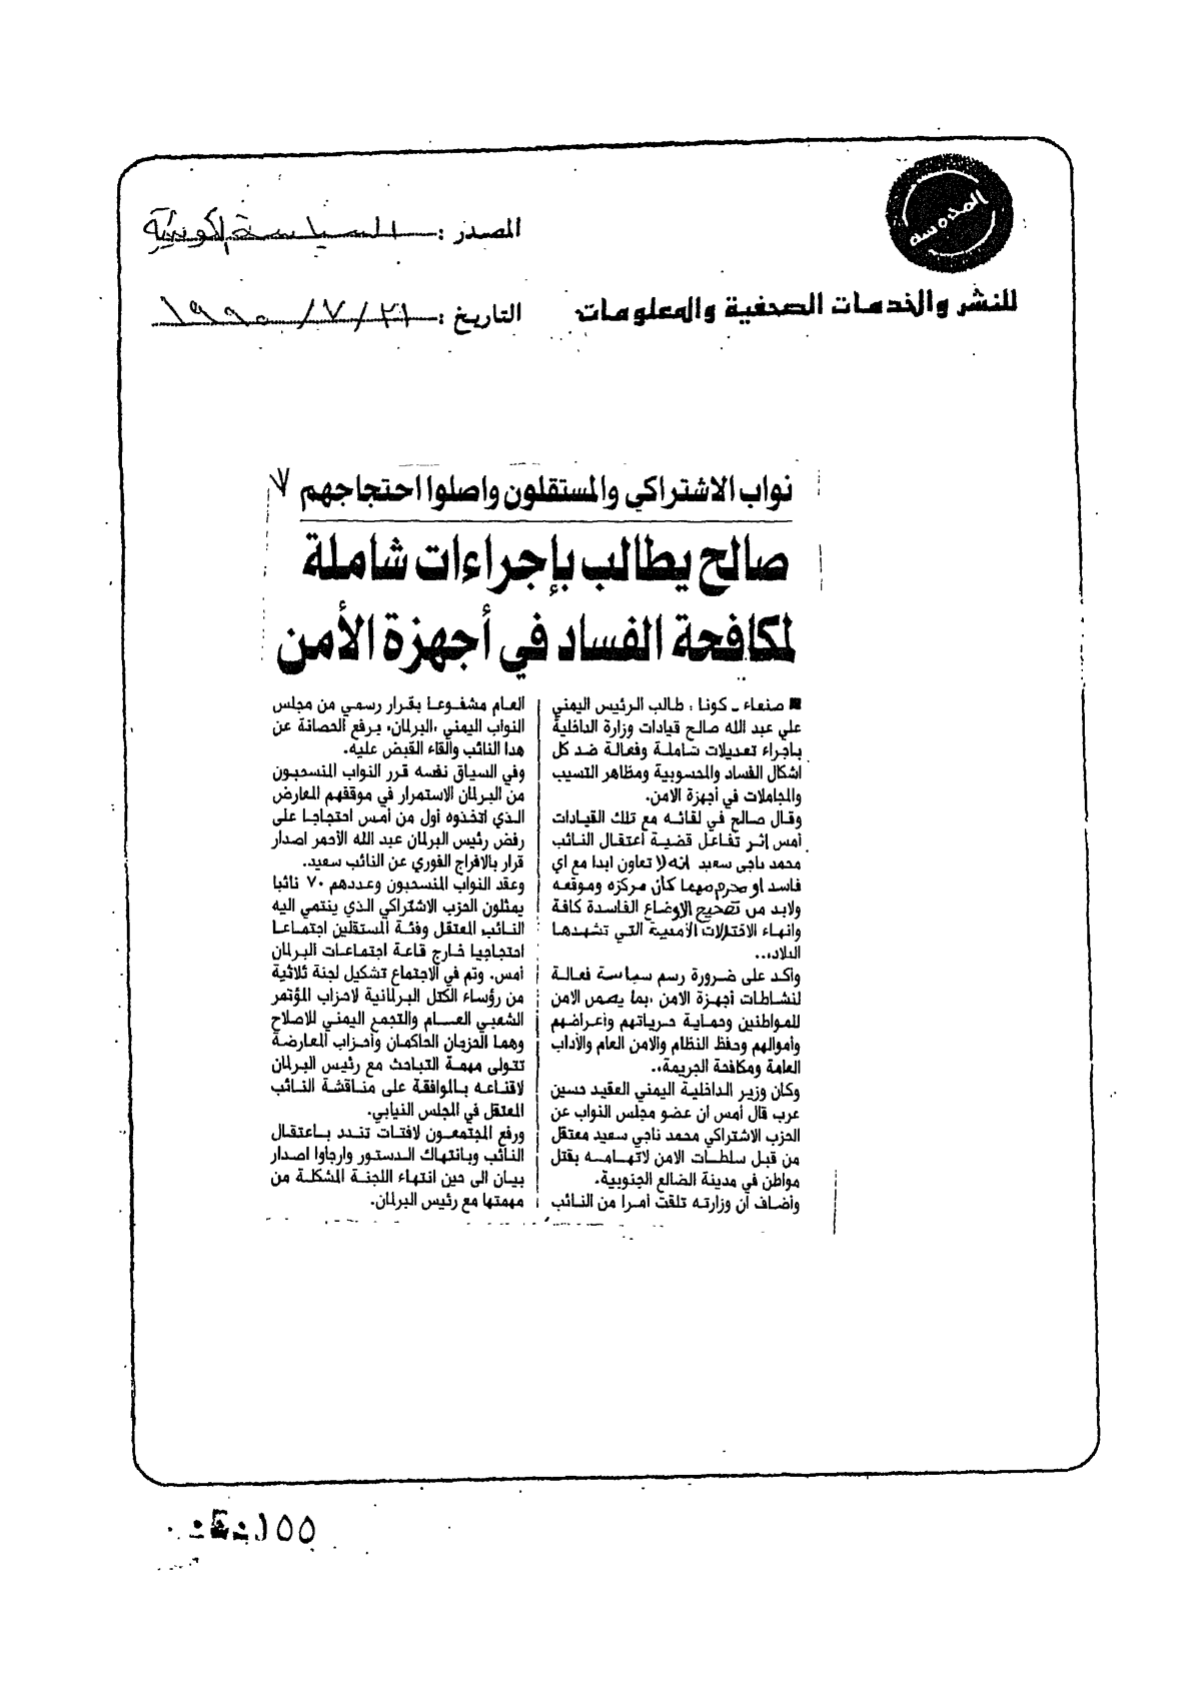 المدرسة
للنشر والخدمات الصحفية والمعلومات
المصدر : السياسة الكويتية
التاريخ : ٢١ / ٧ / ١٩٩٥
نواب الاشتراكي والمستقلون واصلوا احتجاجهم ٧
صالح يطالب بإجراءات شاملة
لمكافحة الفساد في أجهزة الأمن
■ صنعاء ـ كونا : طالب الرئيس اليمني
علي عبد الله صالح قيادات وزارة الداخلية
باجراء تعديلات شاملة وفعالة ضد كل
اشكال الفساد والمحسوبية ومظاهر التسيب
والمجاملات في أجهزة الامن.
وقال صالح في لقائه مع تلك القيادات
أمس إثر تفاعل قضية اعتقال النائب
محمد ناجي سعيد انه لا تعاون ابدا مع اي
فاسد او مجرم مهما كان مركزه وموقعه
ولابد من تصحيح الاوضاع الفاسدة كافة
وانهاء الاختلالات الأمنية التي تشهدها
البلاد،..
وأكد على ضرورة رسم سياسة فعالة
لنشاطات أجهزة الامن ،بما يضمن الامن
للمواطنين وحماية حرياتهم وأعراضهم
وأموالهم وحفظ النظام والامن العام والآداب
العامة ومكافحة الجريمة،.
وكان وزير الداخلية اليمني العقيد حسين
عرب قال أمس ان عضو مجلس النواب عن
الحزب الاشتراكي محمد ناجي سعيد معتقل
من قبل سلطات الامن لاتهامه بقتل
مواطن في مدينة الضالع الجنوبية.
وأضاف ان وزارته تلقت أمرا من النائب
العام مشفوعا بقرار رسمي من مجلس
النواب اليمني ،البرلمان، برفع الحصانة عن
هذا النائب والقاء القبض عليه.
وفي السياق نفسه قرر النواب المنسحبون
من البرلمان الاستمرار في موقفهم المعارض
الذي اتخذوه أول من أمس احتجاجا على
رفض رئيس البرلمان عبد الله الأحمر اصدار
قرار بالافراج الفوري عن النائب سعيد.
وعقد النواب المنسحبون وعددهم ٧٠ نائبا
يمثلون الحزب الاشتراكي الذي ينتمي اليه
النائب المعتقل وفئة المستقلين اجتماعا
احتجاجيا خارج قاعة اجتماعات البرلمان
أمس. وتم في الاجتماع تشكيل لجنة ثلاثية
من رؤساء الكتل البرلمانية لاحزاب المؤتمر
الشعبي العام والتجمع اليمني للاصلاح
وهما الحزبان الحاكمان وأحزاب المعارضة
تتولى مهمة التباحث مع رئيس البرلمان
لاقناعه بالموافقة على مناقشة النائب
المعتقل في المجلس النيابي.
ورفع المجتمعون لافتات تندد باعتقال
النائب وبانتهاك الدستور وارجاوا اصدار
بيان الى حين انتهاء اللجنة المشكلة من
مهمتها مع رئيس البرلمان.